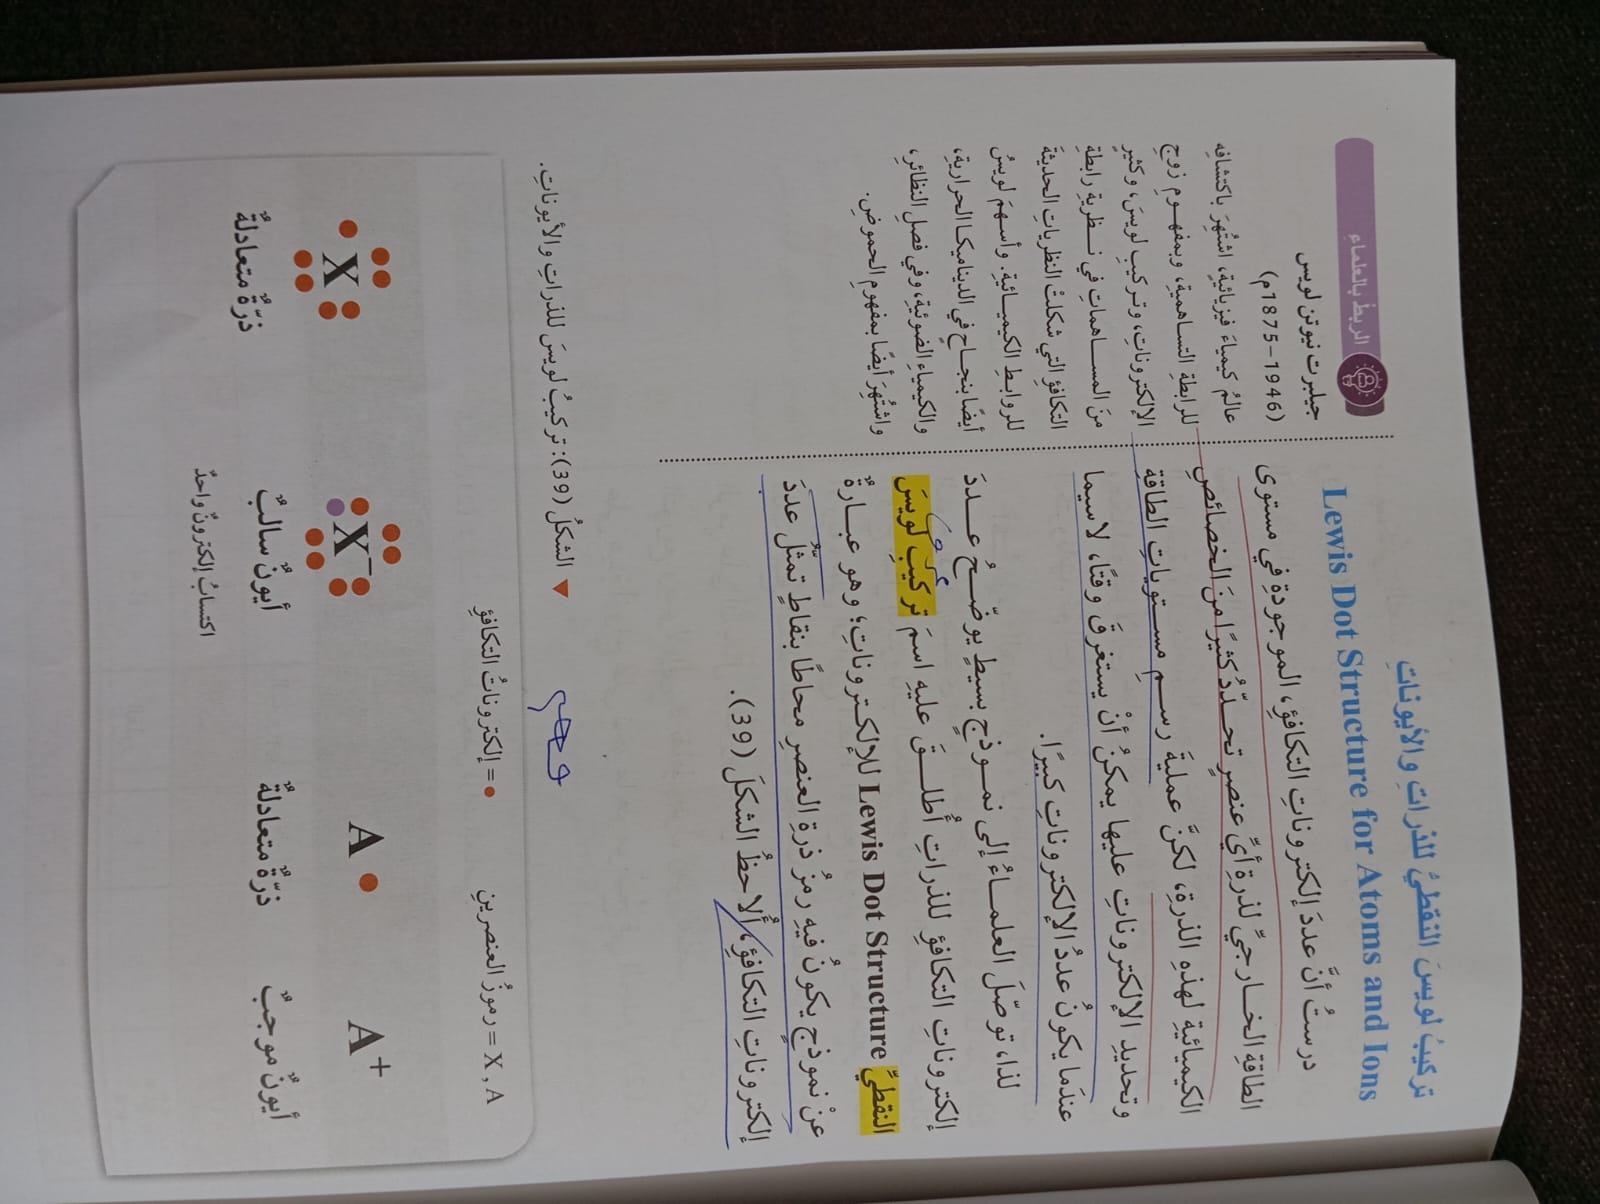 تركيبُ لويسَ النقطيُّ للذراتِ والأيوناتِ
Lewis Dot Structure for Atoms and Ions
درستُ أنَّ عددَ إلكتروناتِ التكافؤِ، الموجودةِ في مستوى
الطاقةِ الخارجيِّ لذرةِ أيِّ عنصرٍ تحدِّدُ كثيرًا منَ الخصائصِ
الكيميائيةِ لهذهِ الذرةِ، لكنَّ عمليةَ رسمِ مستوياتِ الطاقةِ
وتحديدِ الإلكتروناتِ عليها يمكنُ أنْ يستغرقَ وقتًا، لاسيما
عندَما يكونُ عددُ الإلكتروناتِ كبيرًا.
لذا، توصّلَ العلماءُ إلى نموذجٍ بسيطٍ يوضّحُ عددَ
إلكتروناتِ التكافؤِ للذراتِ أُطلقَ عليهِ اسمَ تركيبِ لويسَ
النقطيِّ Lewis Dot Structure للإلكتروناتِ؛ وهو عبارةٌ
عنْ نموذجٍ يكونُ فيهِ رمزُ ذرةِ العنصرِ محاطًا بنقاطٍ تمثّلُ عددَ
إلكتروناتِ التكافؤِ، أُلاحظُ الشكلَ (39).
الربطُ بالعلماءِ
جيلبرت نيوتن لويس
(1875-1946م)
عالمُ كيمياءَ فيزيائيةٍ، اشتُهِرَ باكتشافهِ
للرابطةِ التساهميةِ، وبمفهومِ زوجِ
الإلكتروناتِ، وتركيبِ لويسَ، وكثيرٍ
منَ المساهماتِ في نظريةِ رابطةِ
التكافؤِ التي شكلتْ النظرياتِ الحديثةَ
للروابطِ الكيميائيةِ. وأسهمَ لويسُ
أيضًا بنجاحٍ في الديناميكا الحراريةِ،
والكيمياءِ الضوئيةِ، وفي فصلِ النظائرِ،
واشتُهِرَ أيضًا بمفهومِ الحموضِ.
▼ الشكلُ (39): تركيبُ لويسَ للذراتِ والأيوناتِ.
X , A = رموزُ العنصرينِ
= إلكتروناتُ التكافؤِ
A+ A X− X
أيونٌ موجبٌ
ذرّةٌ متعادلةٌ
أيونٌ سالبٌ
ذرّةٌ متعادلةٌ
اكتسابُ إلكترونٍ واحدٍ